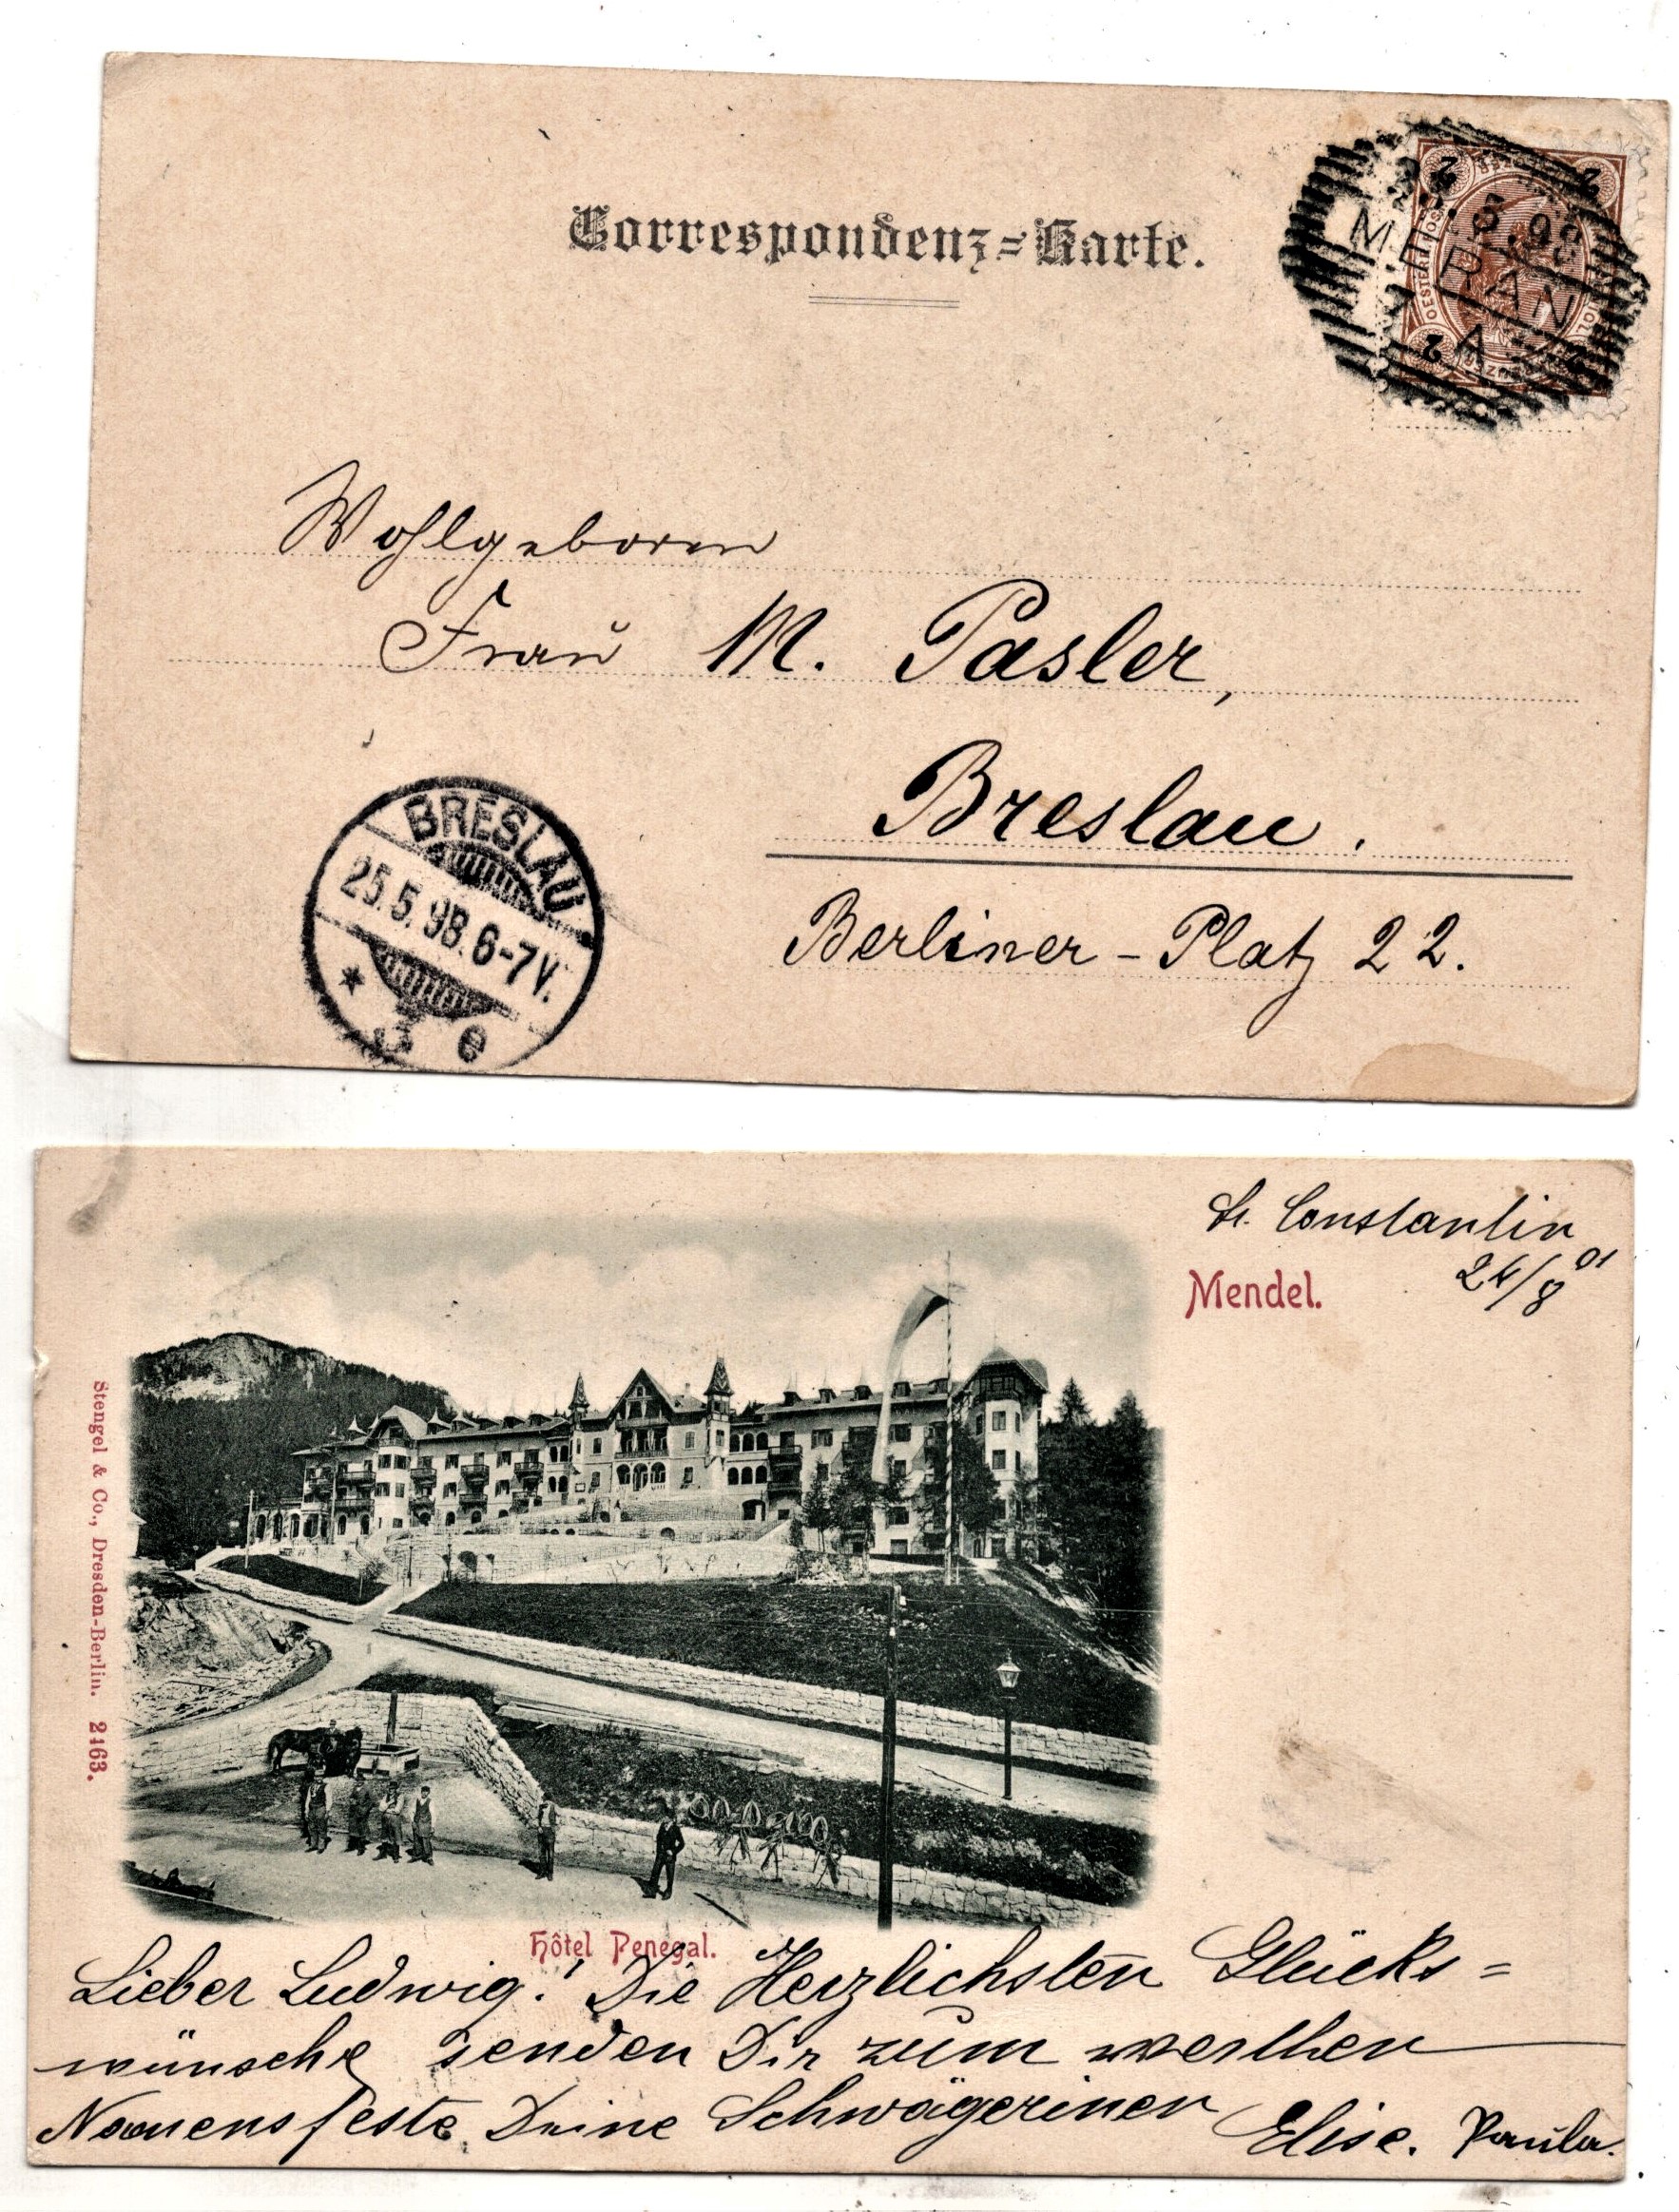 Correspondenz=Karte.
MERAN
Wohlgeboren
Frau M. Pasler,
Breslau.
Berliner-Platz 22.
BRESLAU
25.5.98.6-7V.
* 13 e
St. Constantin
24/8 01
Mendel.
Stengel & Co., Dresden-Berlin. 2163.
Hôtel Penegal.
Lieber Ludwig! Die Herzlichsten Glücks=
wünsche senden Dir zum werthen
Namensfeste. Deine Schwägerinen Elise. Paula.